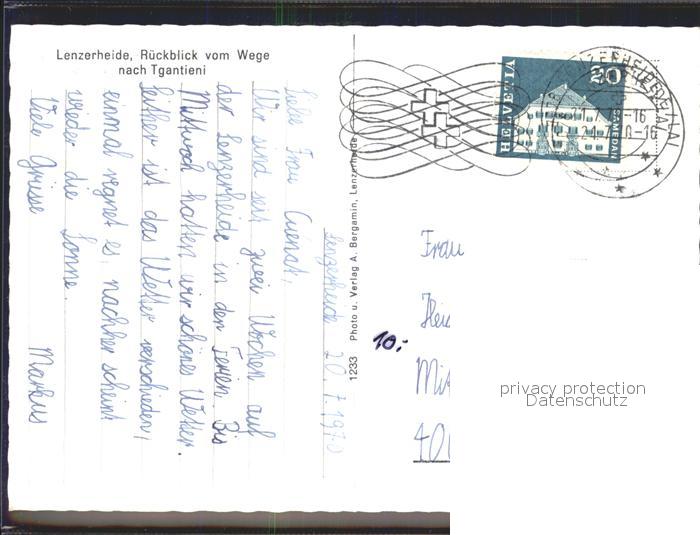 Lenzerheide, Rückblick vom Wege
nach Tgantieni
Lenzerheide 20.7.1970
Liebe Frau Cuenat,
Wir sind seit zwei Wochen auf
der Lenzerheide in den Ferien. Bis
Mittwoch hatten wir schönes Wetter.
Seither ist das Wetter verschieden,
einmal regnet es, nachher scheint
wieder die Sonne.
Viele Grüsse
Markus
1233 Photo u. Verlag A. Bergamin, Lenzerheide
HELVETIA
20
10:-
Frau
privacy protection
Datenschutz